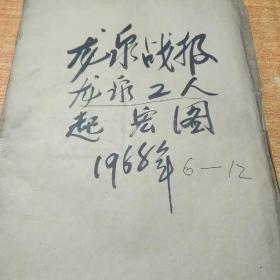 龙泉战报
龙泉工人
起宏图
1968年 6—12